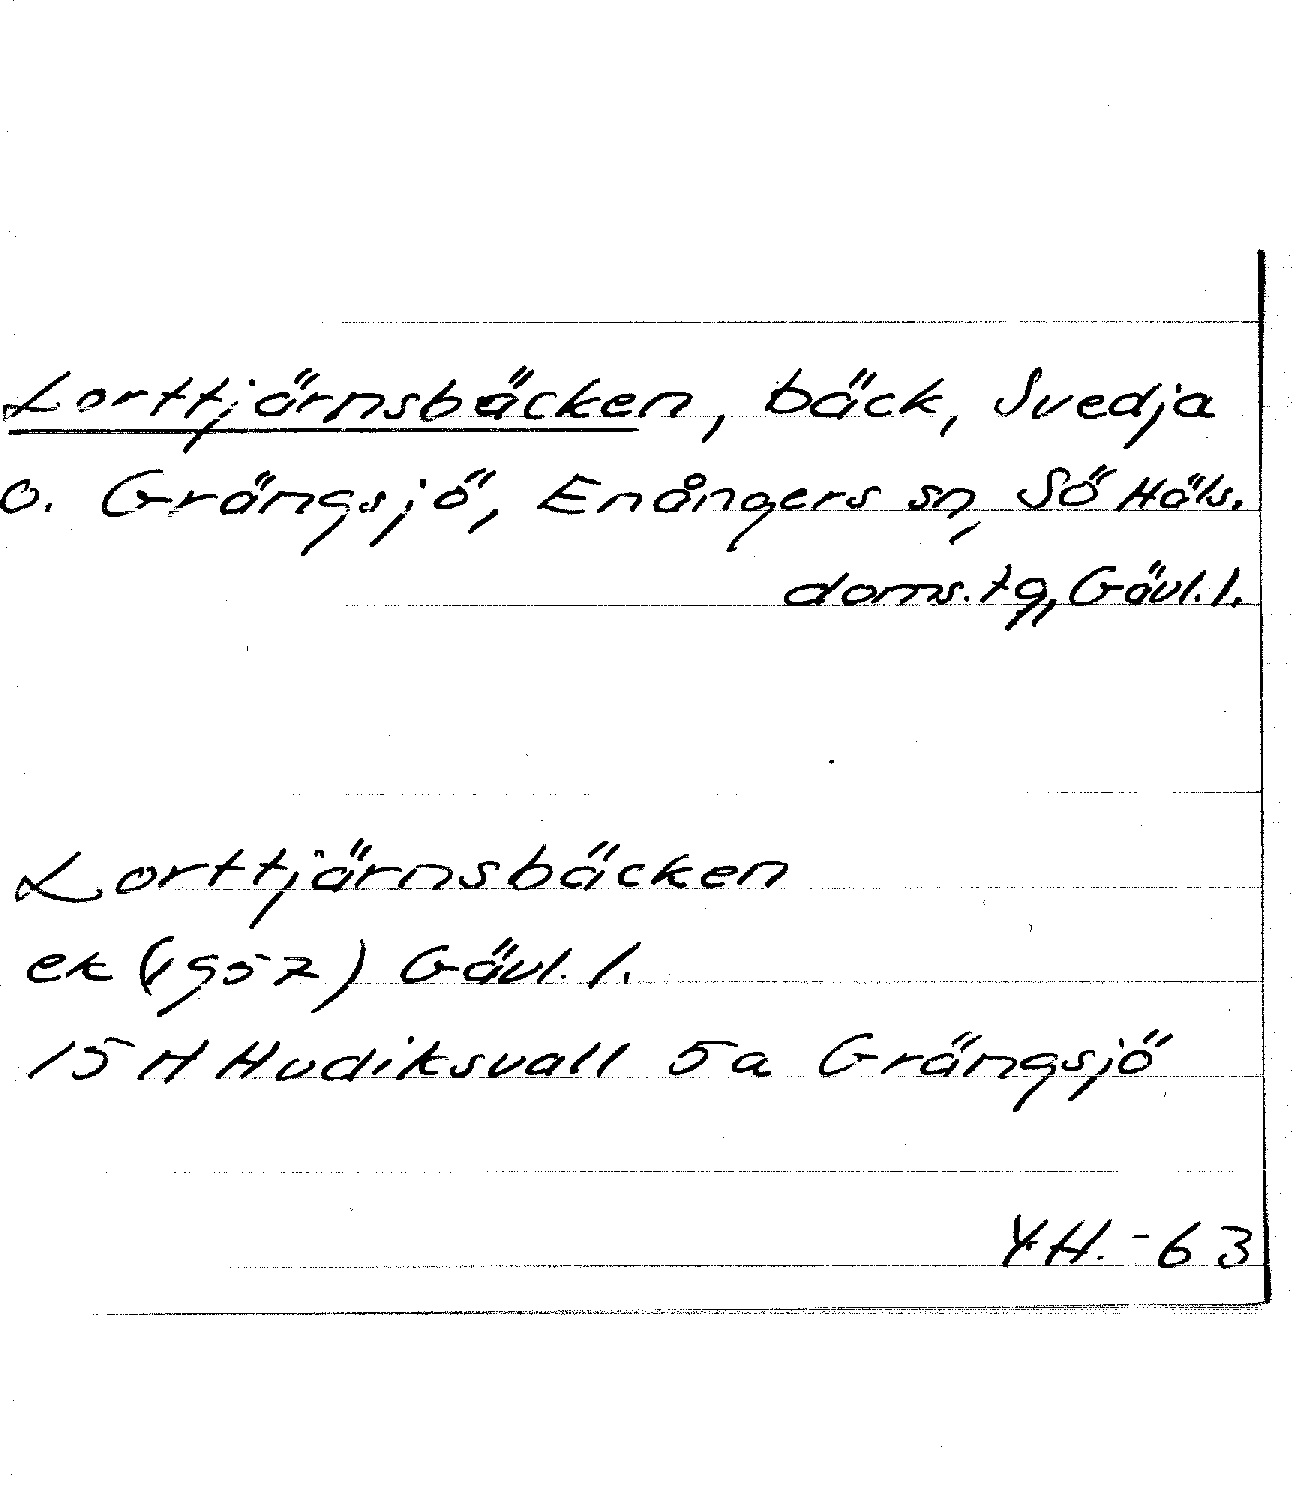 Lorttjärnsbäcken, bäck, Svedja
o. Grängsjö, Enångers sn, Sö Häls.
doms.tg, Gävl.l.
Lorttjärnsbäcken
ek (1957) Gävl.l.
15 H Hudiksvall 5a Grängsjö
Y.H. -63